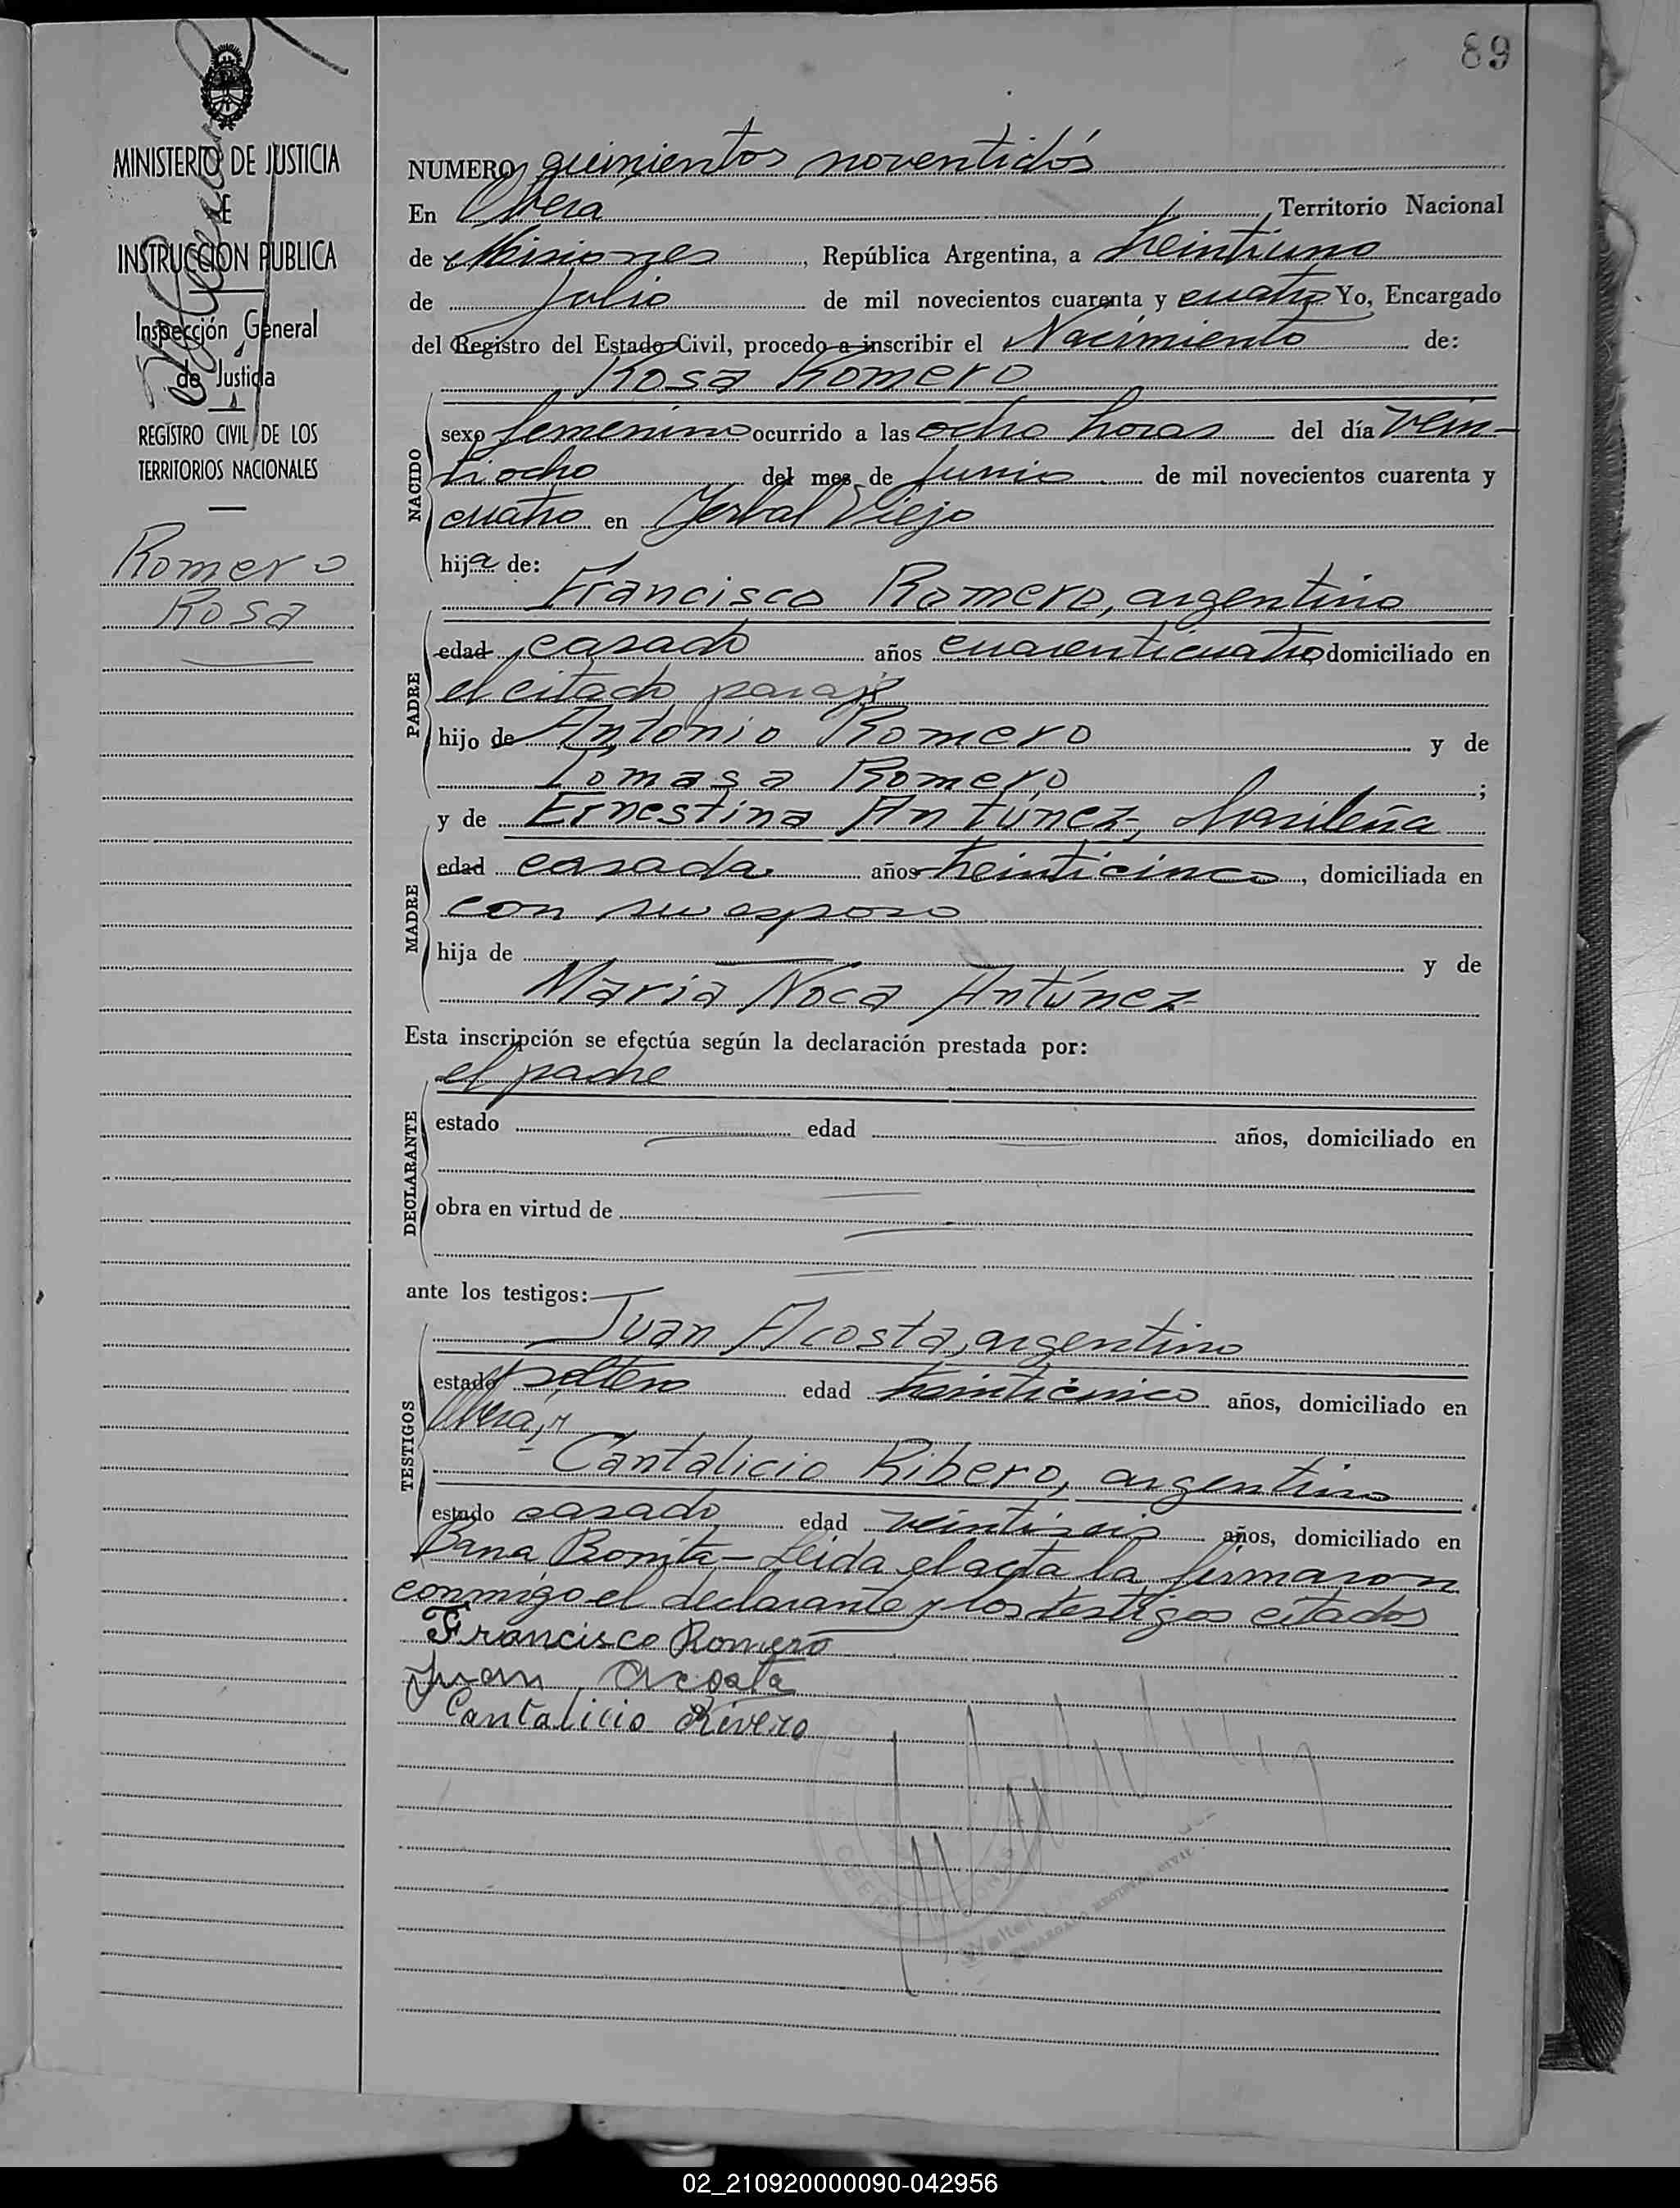 89
MINISTERIO DE JUSTICIA
E
INSTRUCCION PUBLICA
Inspección General
de Justicia
REGISTRO CIVIL DE LOS
TERRITORIOS NACIONALES
Romero
Rosa
NUMERO quinientos noventidós
En Obera, Territorio Nacional
de Misiones, República Argentina, a treintiuno
de Julio de mil novecientos cuarenta y cuatro Yo, Encargado
del Registro del Estado Civil, procedo a inscribir el Nacimiento de:
Rosa Romero
NACIDO
sexo femenino ocurrido a las ocho horas del día vein-
tiocho del mes de Junio de mil novecientos cuarenta y
cuatro en Yerbal Viejo
hija de:
Francisco Romero, argentino
PADRE
edad casado años cuarenticuatro domiciliado en
el citado paraje
hijo de Antonio Romero y de
Tomasa Romero ;
y de Ernestina Antúnez, brasileña
MADRE
edad casada años treinticinco, domiciliada en
con su esposo
hija de y de
Maria Noca Antúnez
Esta inscripción se efectúa según la declaración prestada por:
el padre
DECLARANTE
estado edad años, domiciliado en
obra en virtud de
ante los testigos:
Juan Acosta, argentino
TESTIGOS
estado soltero edad treinticinco años, domiciliado en
Obera, y
Cantalicio Ribero, argentino
estado casado edad veintiseis años, domiciliado en
Bona Bonita - Leida el acta la firmaron
conmigo el declarante y los testigos citados
Francisco Romero
Juan Acosta
Cantalicio Rivero
ENCARGADO REGISTRO CIVIL
02_210920000090-042956